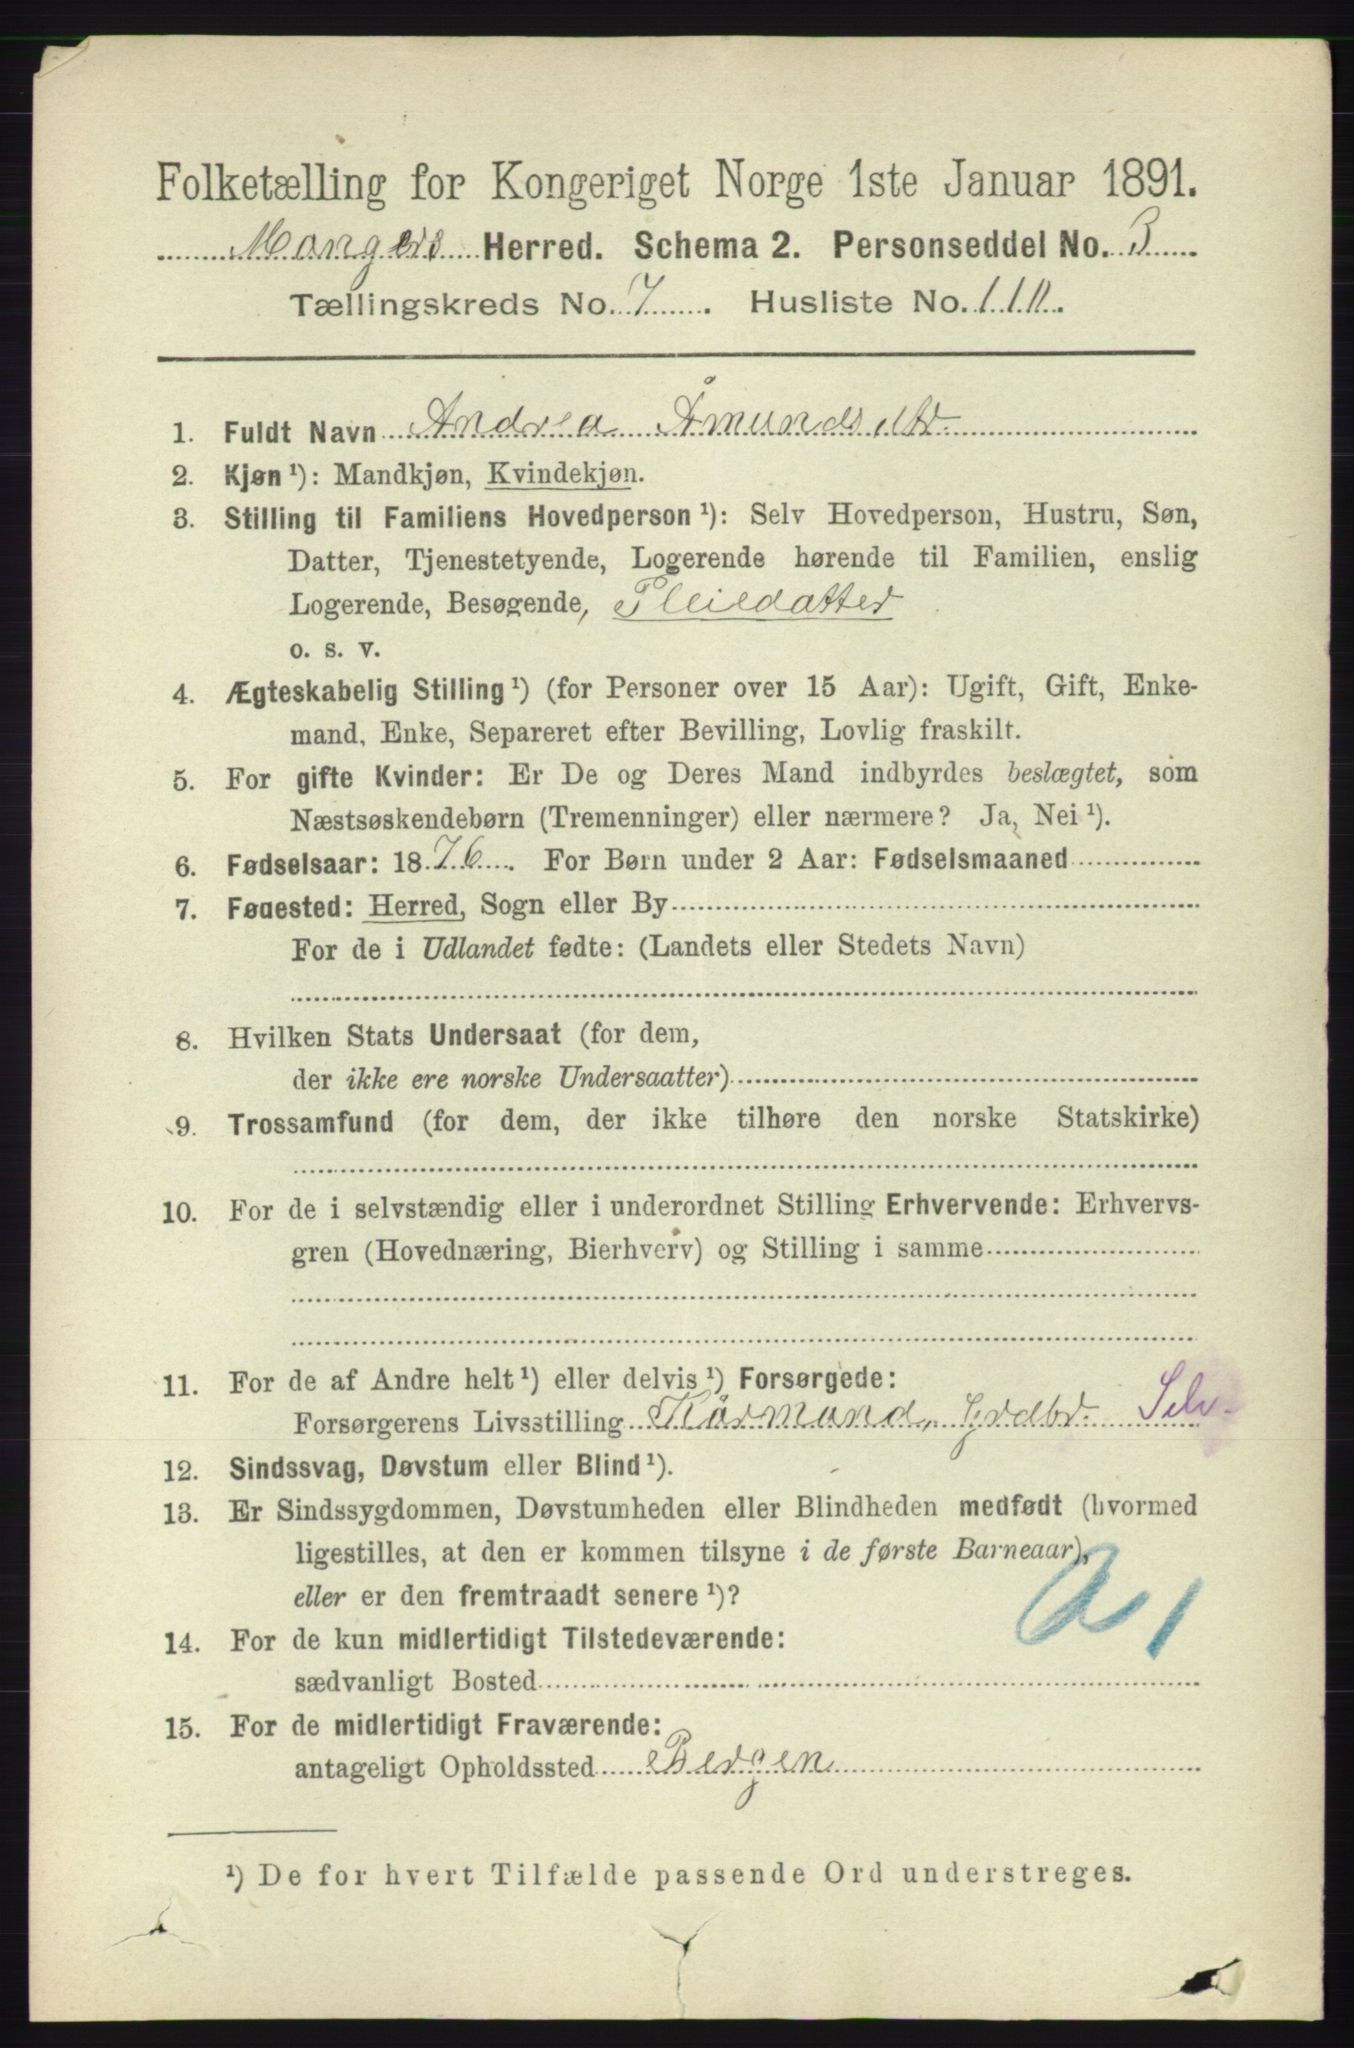 Folketælling for Kongeriget Norge 1ste Januar 1891.
Mangers Herred. Schema 2. Personseddel No. 3
Tællingskreds No. 7. Husliste No. 110.
1. Fuldt Navn Andrea Åmundsdtr
2. Kjøn ¹): Mandkjøn, Kvindekjøn.
3. Stilling til Familiens Hovedperson ¹): Selv Hovedperson, Hustru, Søn,
Datter, Tjenestetyende, Logerende hørende til Familien, enslig
Logerende, Besøgende, Pleiedatter
o. s. v.
4. Ægteskabelig Stilling ¹) (for Personer over 15 Aar): Ugift, Gift, Enke-
mand, Enke, Separeret efter Bevilling, Lovlig fraskilt.
5. For gifte Kvinder: Er De og Deres Mand indbyrdes beslægtet, som
Næstsøskendebørn (Tremenninger) eller nærmere? Ja, Nei ¹).
6. Fødselsaar: 1876. For Børn under 2 Aar: Fødselsmaaned
7. Fødested: Herred, Sogn eller By
For de i Udlandet fødte: (Landets eller Stedets Navn)
8. Hvilken Stats Undersaat (for dem,
der ikke ere norske Undersaatter)
9. Trossamfund (for dem, der ikke tilhøre den norske Statskirke)
10. For de i selvstændig eller i underordnet Stilling Erhvervende: Erhvervs-
gren (Hovednæring, Bierhverv) og Stilling i samme
11. For de af Andre helt ¹) eller delvis ¹) Forsørgede:
Forsørgerens Livsstilling Kårmand, Grdbr. Selv
12. Sindssvag, Døvstum eller Blind ¹).
13. Er Sindssygdommen, Døvstumheden eller Blindheden medfødt (hvormed
ligestilles, at den er kommen tilsyne i de første Barneaar),
eller er den fremtraadt senere ¹)?
14. For de kun midlertidigt Tilstedeværende:
sædvanligt Bosted
15. For de midlertidigt Fraværende:
antageligt Opholdssted Bergen
¹) De for hvert Tilfælde passende Ord understreges.